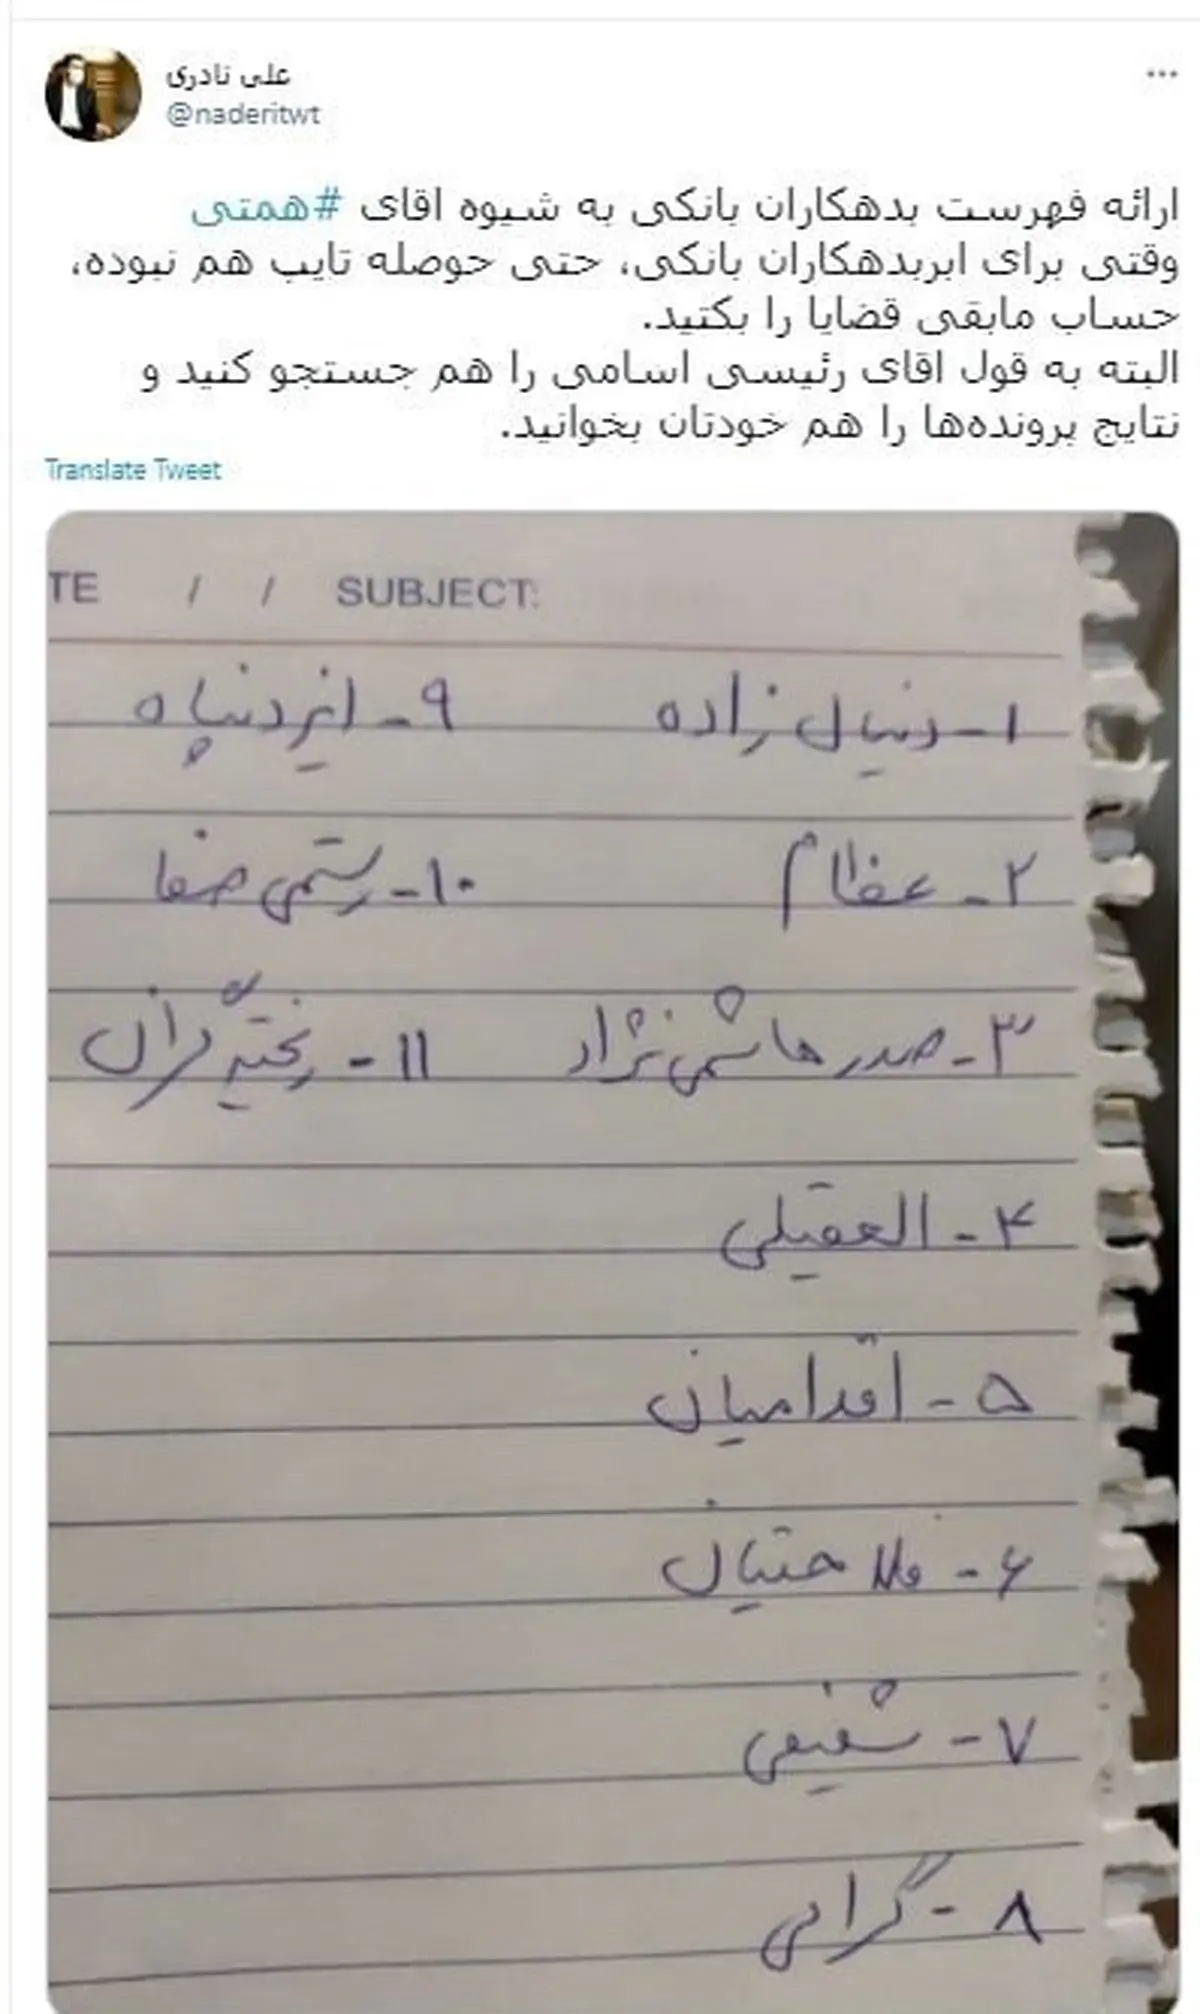 علی نادری
@naderitwt
ارائه فهرست بدهکاران بانکی به شیوه اقای #همتی
وقتی برای ابربدهکاران بانکی، حتی حوصله تایپ هم نبوده،
حساب مابقی قضایا را بکنید.
البته به قول اقای رئیسی اسامی را هم جستجو کنید و
نتایج پرونده‌ها را هم خودتان بخوانید.
Translate Tweet
TE / / SUBJECT:
۱- دنیال زاده
۹- ایزدپناه
۲- عظام
۱۰- رستمی صفا
۳- صدر هاشمی نژاد
۱۱- ریخته گران
۴- العقیلی
۵- اقدامیان
۶- فلاحتیان
۷- شفیعی
۸- گرامی